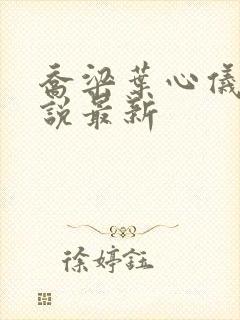 喬梁葉心儀
說最新
徐婷鈺